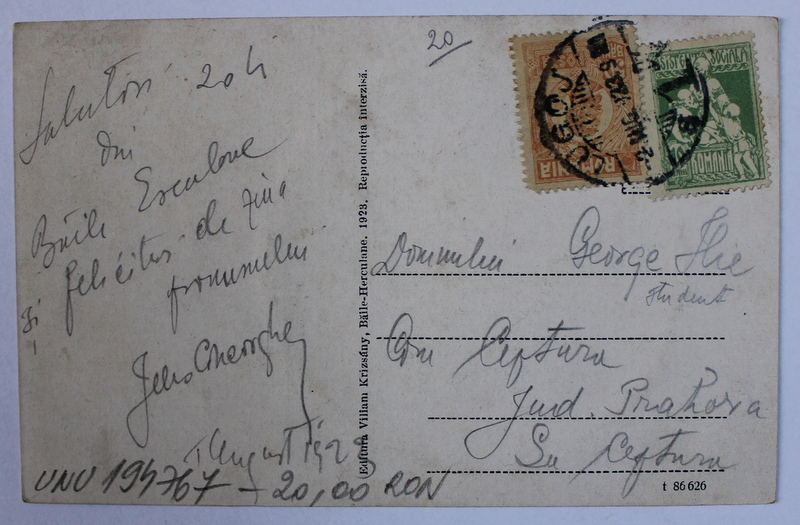 20
Salutări
din
Băile Erculane
și felicitări de ziua
pronumelui
Gheorghe
August 1923
UNU 194767 - 20,00 RON
Editura Viliam Krizsány, Băile-Herculane. 1923. Reproducția interzisă.
LUGOJ
ROMANIA
ASISTENȚA SOCIALA
ROMANIA
Domnului George Ilie
student
Com Ceptura
Jud. Prahova
Ceptura
t 86626